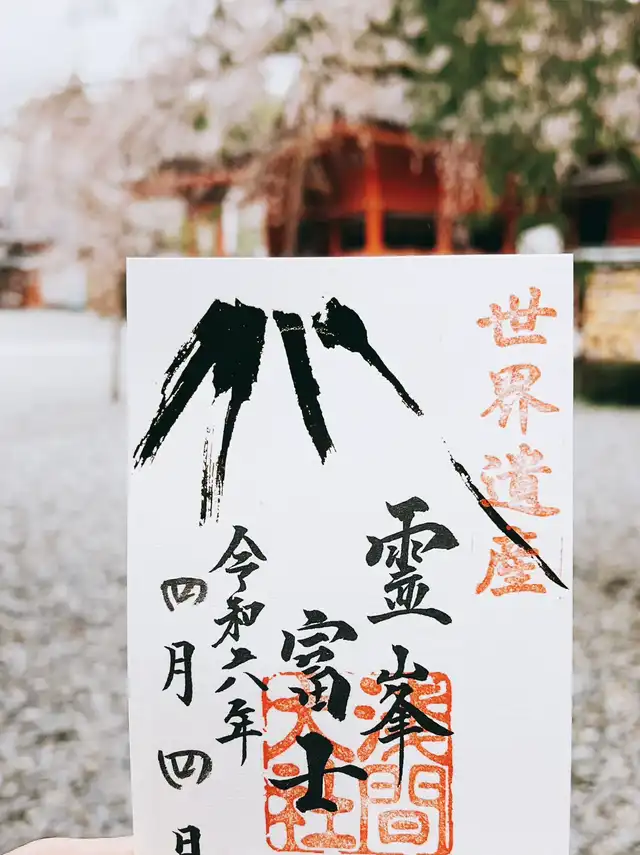 世界遺産
霊峯
富士
浅間
大社
令和六年
四月四日